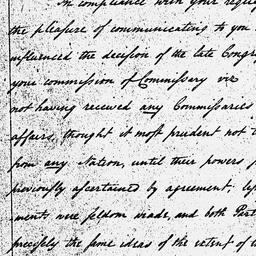 In compliance with your reque
the pleasure of communicating to you
influenced the decision of the late Congr
your commission of Commissary viz
not having received any Commissaries
affairs, thought it most prudent not
from any Nation, until their powers
previously ascertained by agreement.
ments were seldom made, and both Part
precisely the same ideas of the extent of